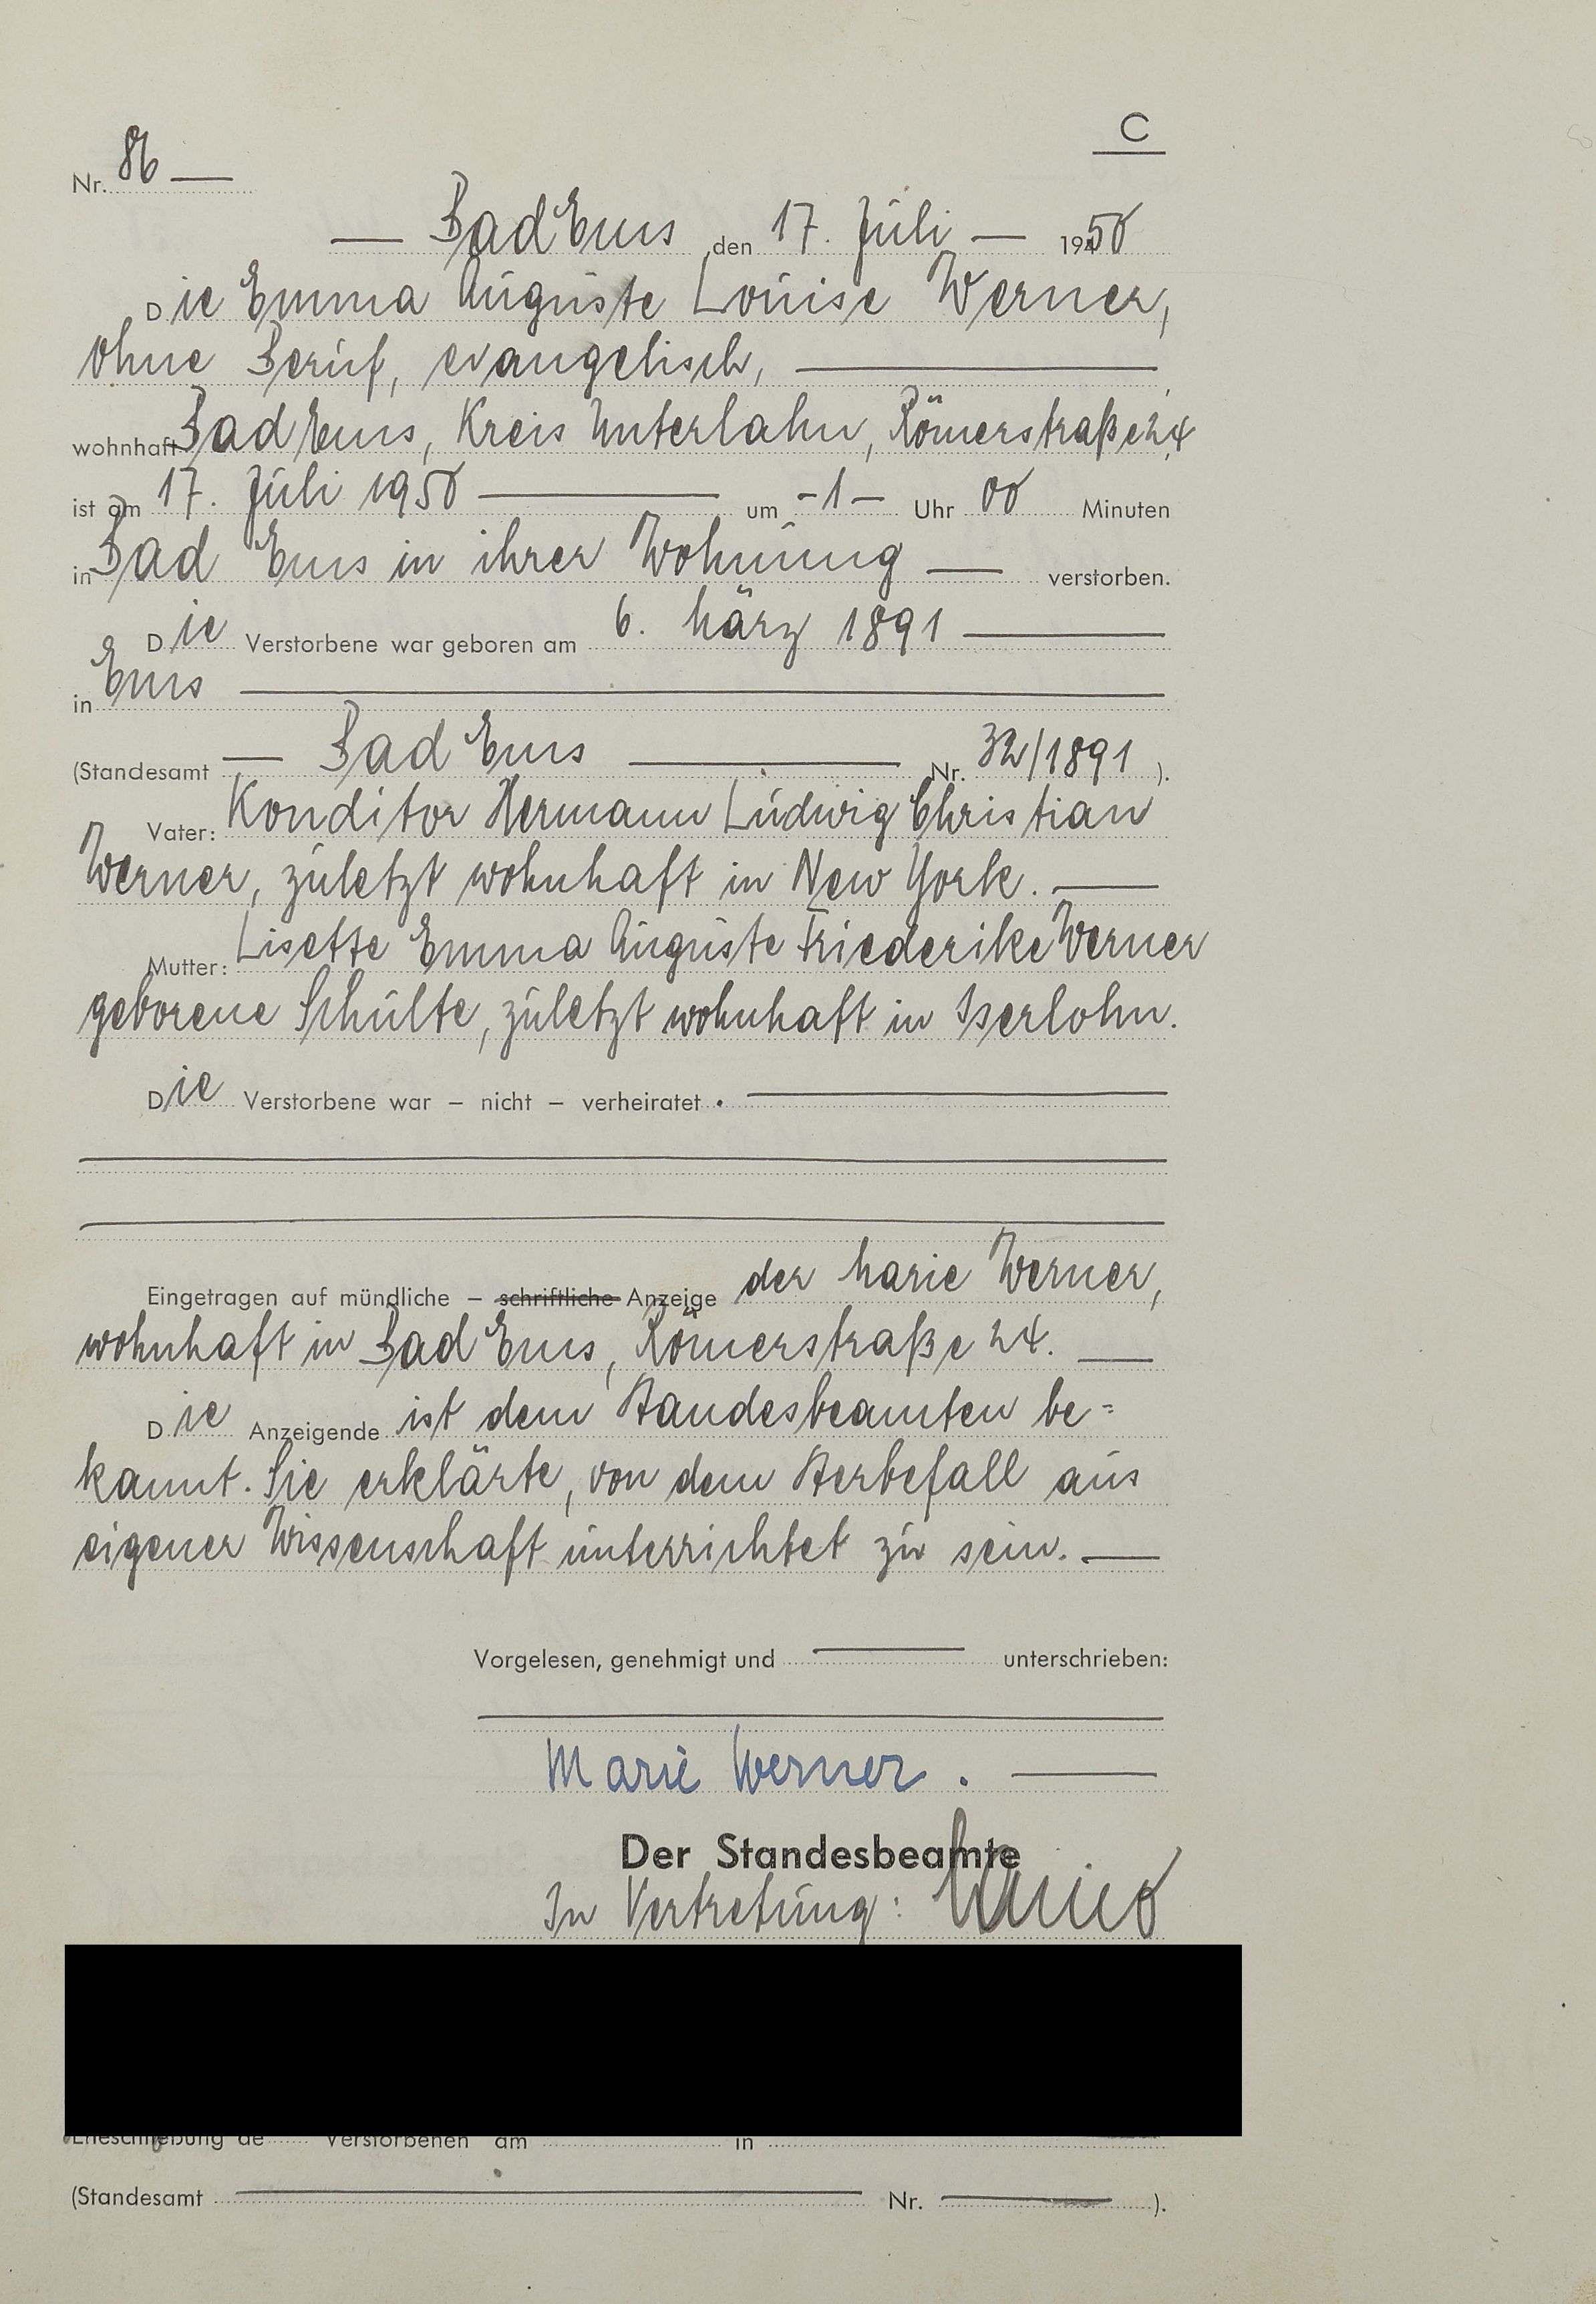 C
Nr. 86 —
— Bad Ems, den 17. Juli — 1950
Die Emma Auguste Louise Werner,
ohne Beruf, evangelisch, —
wohnhaft Bad Ems, Kreis Unterlahn, Römerstraße 24,
ist am 17. Juli 1950 — um - 1 — Uhr 00 Minuten
in Bad Ems in ihrer Wohnung — verstorben.
Die Verstorbene war geboren am 6. März 1891 —
in Ems —
(Standesamt — Bad Ems — Nr. 32/1891 ).
Vater: Konditor Hermann Ludwig Christian
Werner, zuletzt wohnhaft in New York. —
Mutter: Lisette Emma Auguste Friederike Werner
geborene Schulte, zuletzt wohnhaft in Iserlohn.
Die Verstorbene war – nicht – verheiratet. —
Eingetragen auf mündliche – schriftliche Anzeige der Marie Werner,
wohnhaft in Bad Ems, Römerstraße 24. —
Die Anzeigende ist dem Standesbeamten be=
kannt. Sie erklärte, von dem Sterbefall aus
eigener Wissenschaft unterrichtet zu sein. —
Vorgelesen, genehmigt und — unterschrieben:
Marie Werner. —
Der Standesbeamte
In Vertretung:
Eheschließung de Verstorbenen am in
(Standesamt — Nr. — ).